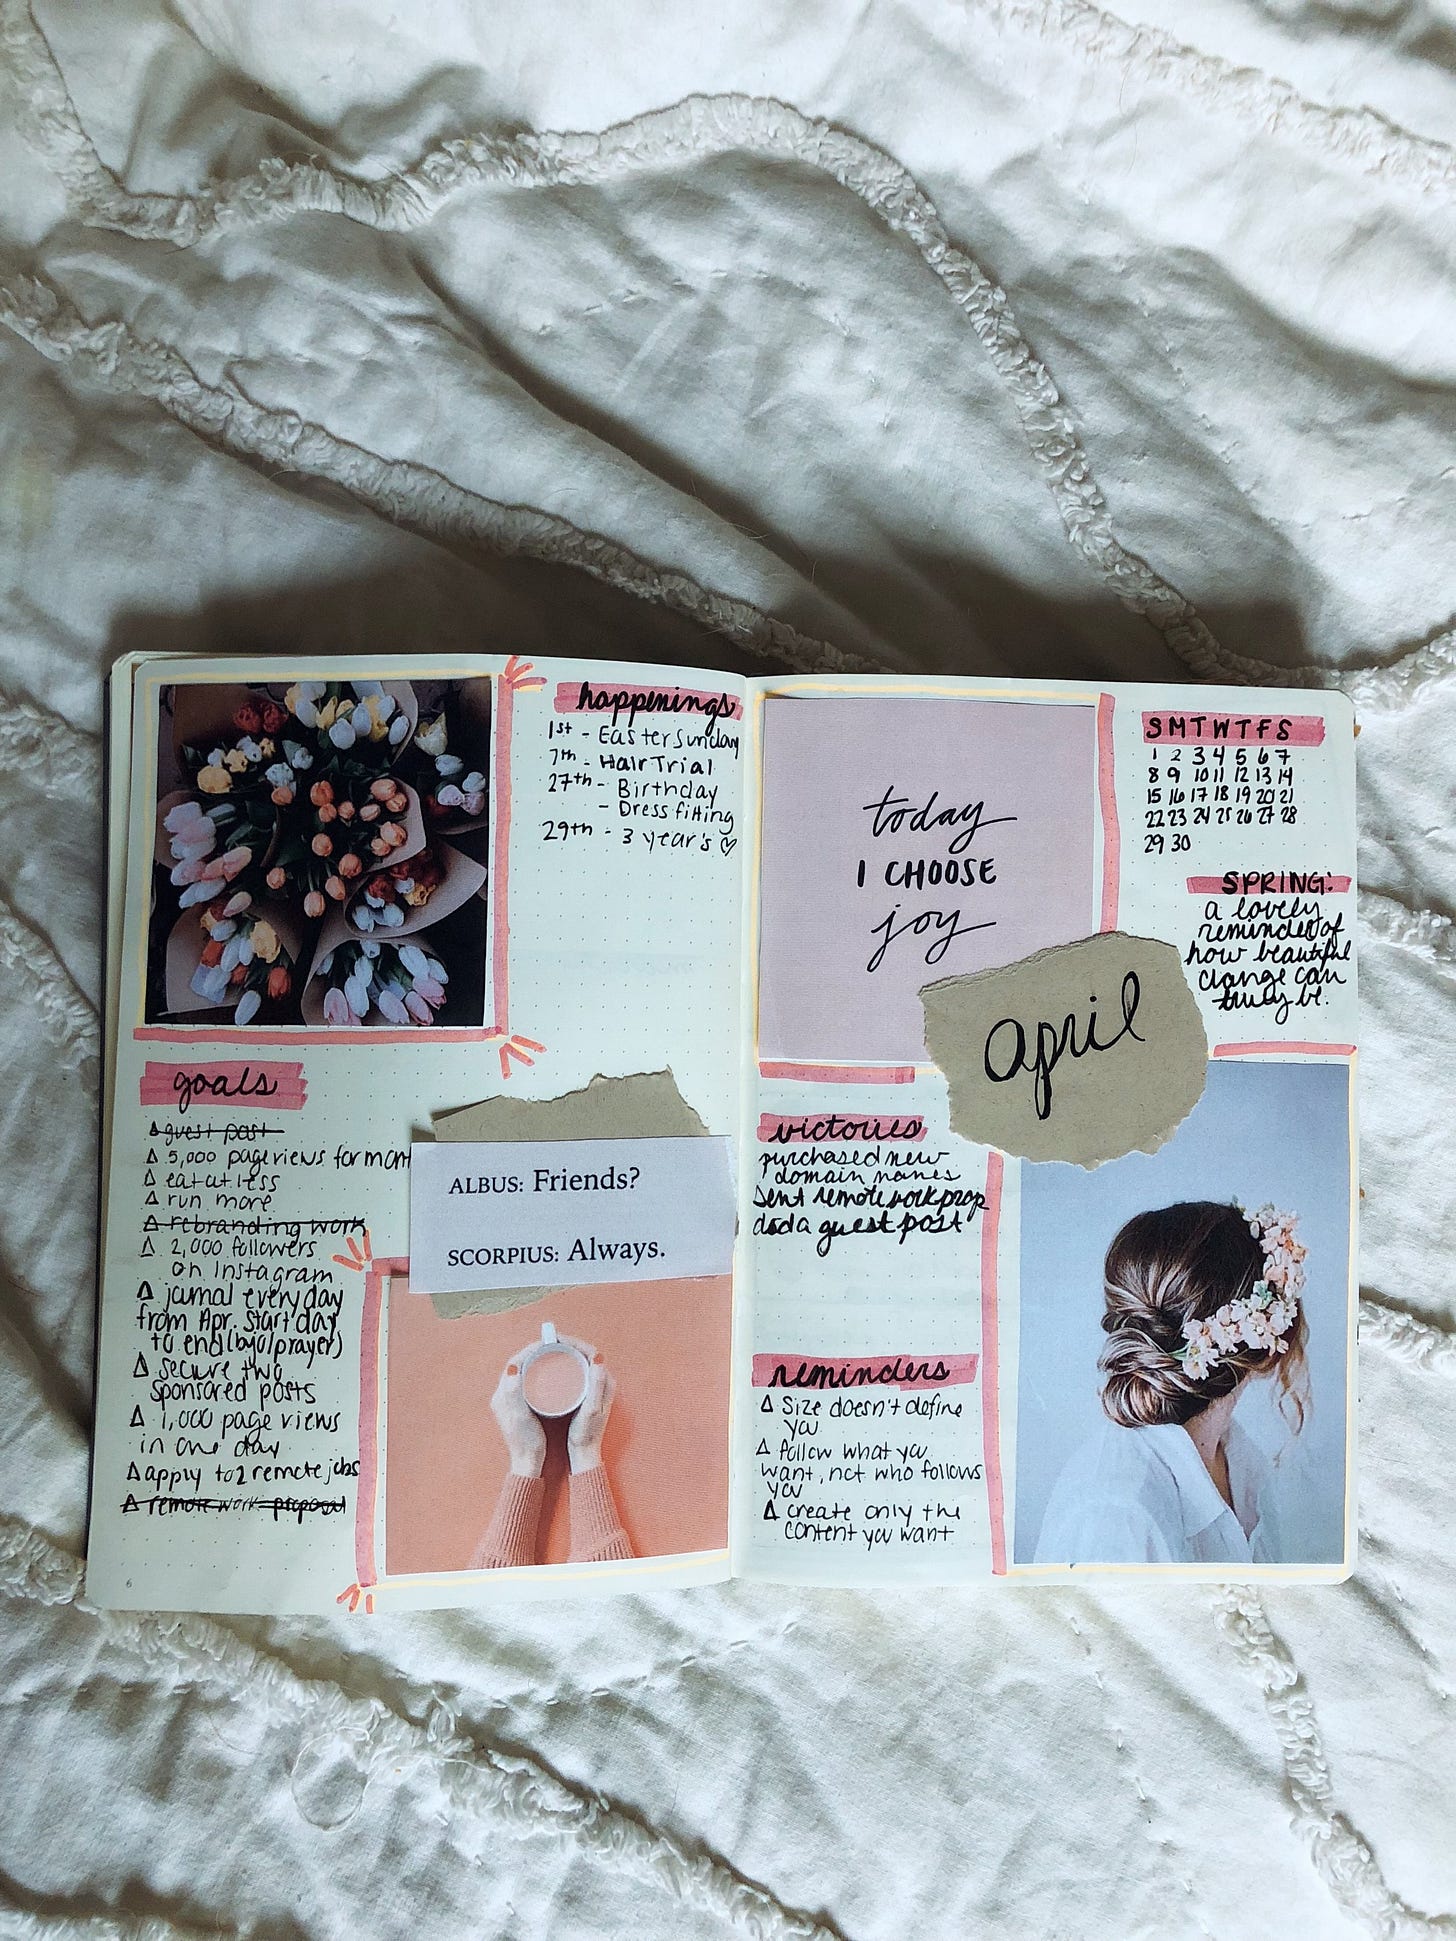 happenings
1st - Easter Sunday
7th - Hair Trial
27th - Birthday
- Dress fitting
29th - 3 year's ♡
goals
Δ guest post
Δ 5,000 pageviews for mont
Δ eat at less
Δ run more
Δ rebranding work
Δ 2,000 followers
on Instagram
Δ jurnal everyday
from Apr. start day
to end (byol prayer)
Δ secure two
sponsored posts
Δ 1,000 page views
in one day
Δ apply to 2 remote jobs
Δ remote work proposal
ALBUS: Friends?
SCORPIUS: Always.
6
today
I CHOOSE
joy
april
S M T W T F S
1 2 3 4 5 6 7
8 9 10 11 12 13 14
15 16 17 18 19 20 21
22 23 24 25 26 27 28
29 30
SPRING:
a lovely
reminder of
how beautiful
change can
truly be.
victories
purchased new
domain names
Sent remote work prop
did a guest post
reminders
Δ Size doesn't define
you
Δ follow what you
want, not who follows
you
Δ create only the
content you want